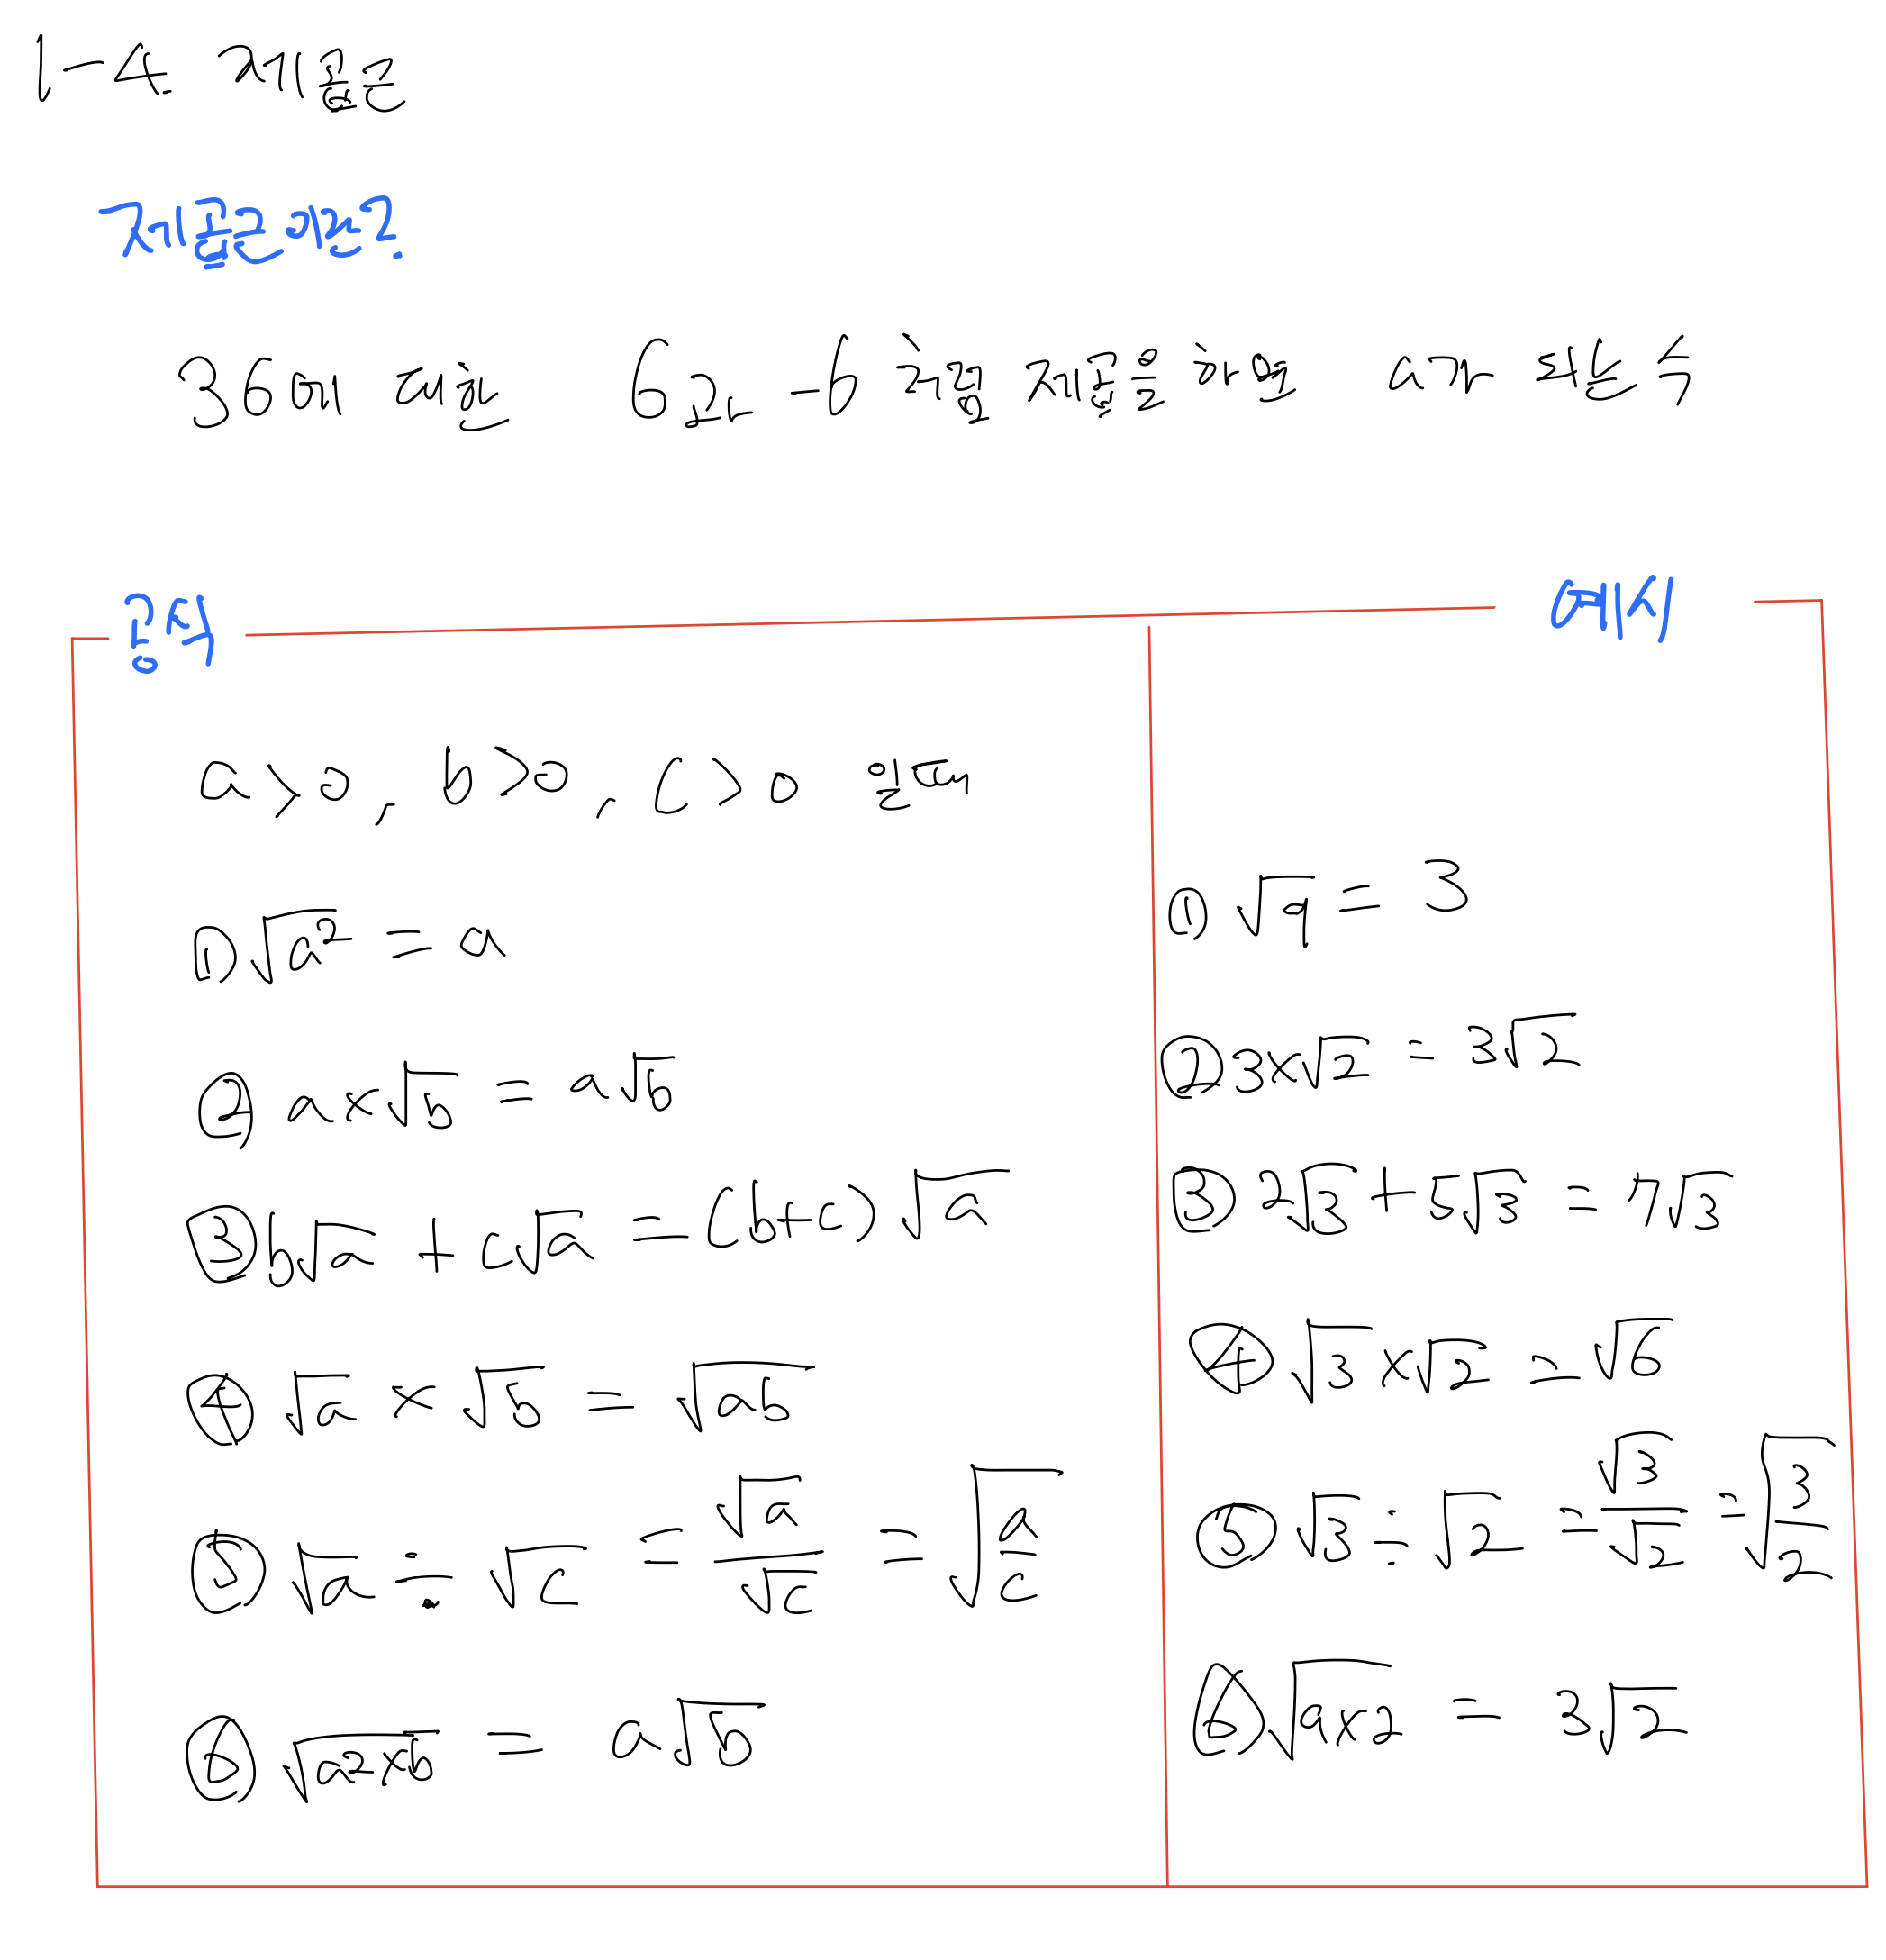 1-4. 제곱근
제곱근이란?
36의 제곱근 6과 -6 처럼 제곱을 하면 a가 되는 수
공식
예시
a>0, b>0, c>0 일때
① √a² = a
② a×√b = a√b
③ b√a + c√a = (b+c)√a
④ √a × √b = √ab
⑤ √a ÷ √c = √a/√c = √(a/c)
⑥ √a²×b = a√b
① √9 = 3
② 3×√2 = 3√2
③ 2√3+5√3 = 7√3
④ √3×√2 = √6
⑤ √3÷√2 = √3/√2 = √(3/2)
⑥ √9×2 = 3√2